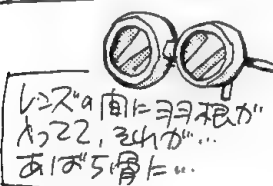 レンズの間に羽根が
入ってて、それが…
あばら骨に…